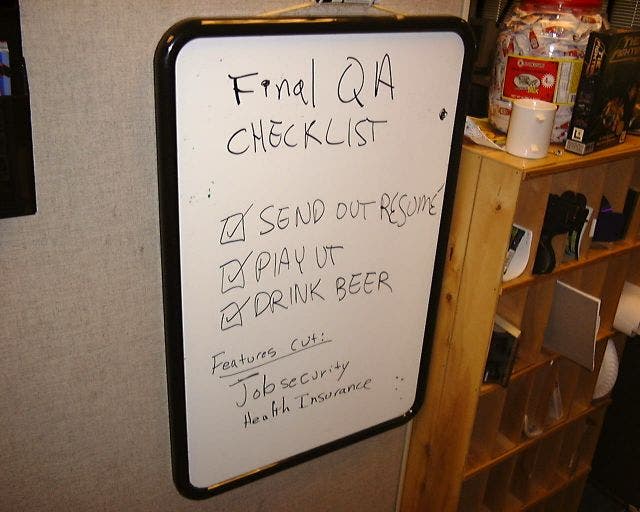 Final QA
CHECKLIST
SEND OUT RESUMÉ
PLAY UT
DRINK BEER
Features cut:
Job security
Health Insurance